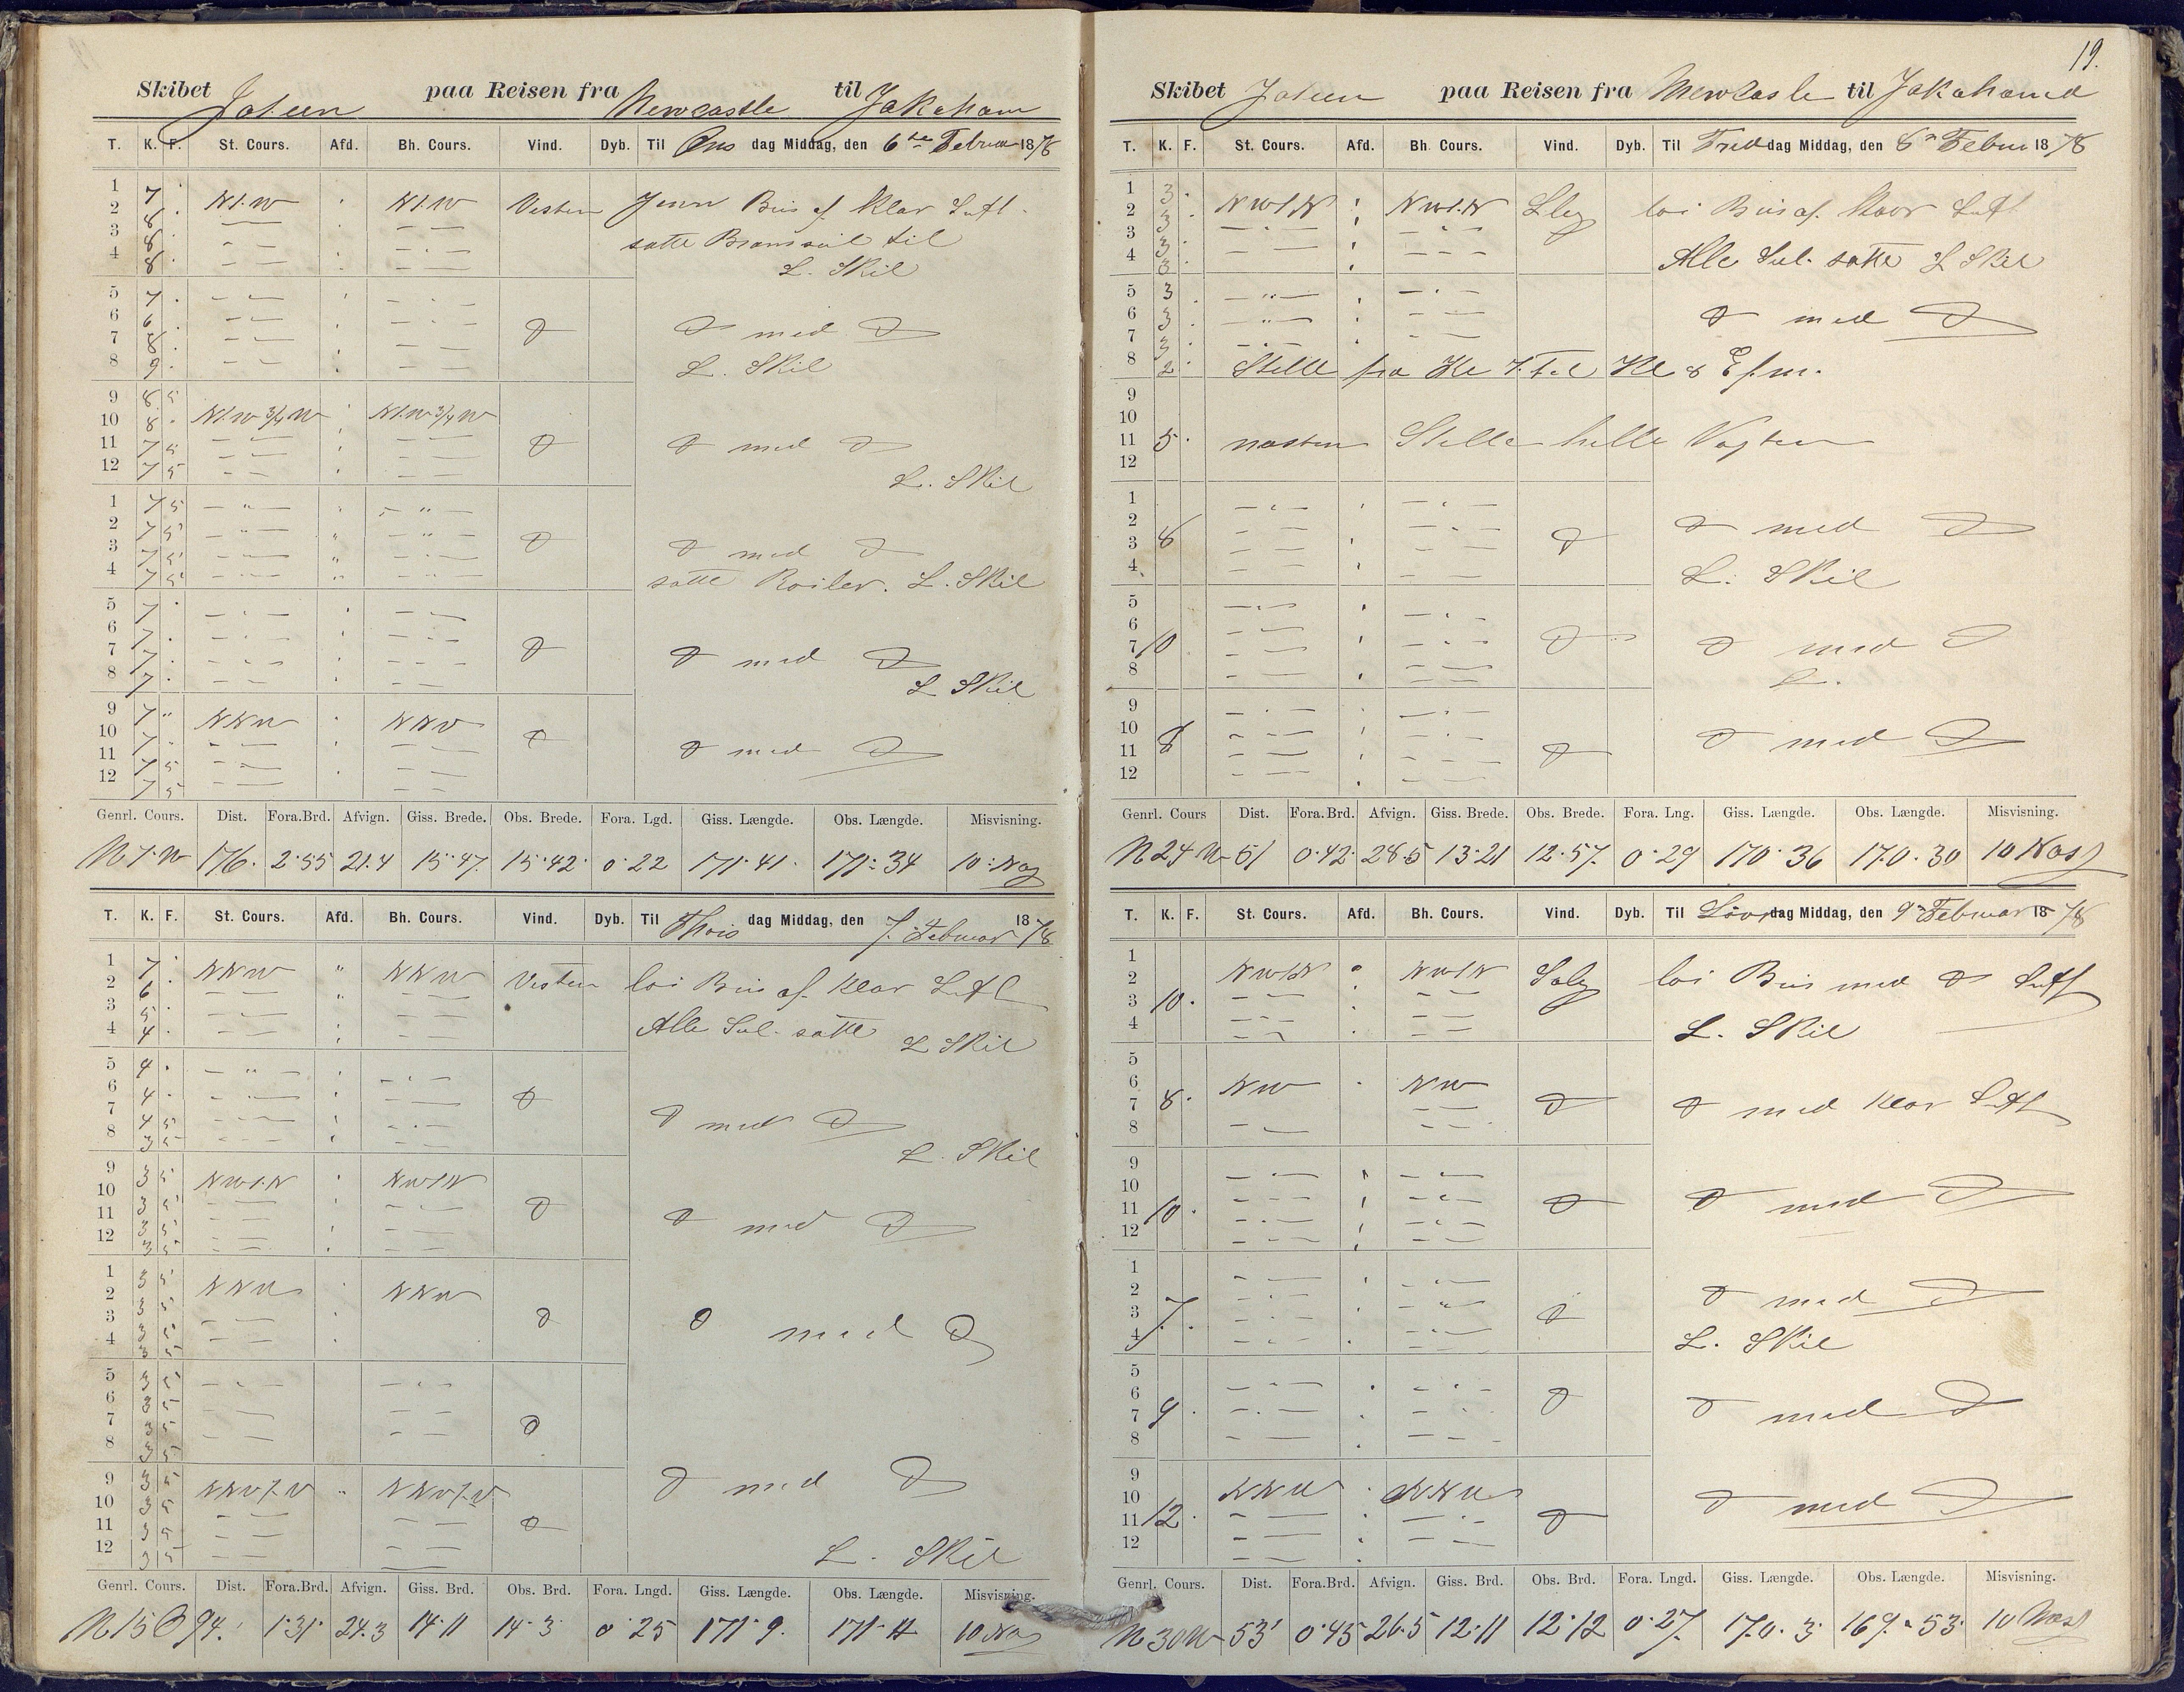 19.
Skibet Joteen paa Reisen fra Newcastle til Jakaham
T. K. F. St. Cours. Afd. Bh. Cours. Vind. Dyb. Til Ons dag Middag, den 6te Februar 1878
1 7 . Nt.W Nt.W Vesten Jevn Bris af Klar Luft
2 8 .
3 8 . satte Bramseil til
4 8 . L. Skil
5 7 .
6 6 .
7 8 . D D med D
8 9 . L. Skil
9 8 5
10 8 . Nt.W 3/4 W Nt.W 3/4 W
11 7 5 D D med D
12 7 5 L. Skil
1 7 5
2 7 5
3 7 5 D D med D
4 7 5 satte Roiler. L. Skil
5 7 .
6 7 .
7 7 . D D med D
8 7 . L Skil
9 7 NNW NNW
10 7 D
11 7 5 D med D
12 7 5
Genrl. Cours. Dist. Fora.Brd. Afvign. Giss. Brede. Obs. Brede. Fora. Lgd. Giss. Længde. Obs. Længde. Misvisning.
N 7. W 176. 2.55 21.4 15.47. 15.42. 0.22 171.41. 171.34 10.
T. K. F. St. Cours. Afd. Bh. Cours. Vind. Dyb. Til Thors dag Middag, den 7. Februar 1878
1 7 . NNW NNW Vesten loi Bris af Klar Luft
2 6
3 5 . Alle Seil. satte
4 4 . L Skil
5 4 .
6 4 . D
7 4 5 D med D
8 3 5 L. Skil
9 3 5 NWt.N NWtN
10 3 5
11 3 5 D D med D
12 3 5
1 3 5 NNW NNW
2 3 5
3 3 5 D D med D
4 3 5
5 3 5
6 3 5
7 3 5 D
8 3 5
9 3 5 NNWt.W NNWt.W D med D
10 3 5
11 3 5 D
12 3 5 L. Skil
Genrl. Cours. Dist. Fora.Brd. Afvign. Giss. Brd. Obs. Brd. Fora. Lngd. Giss. Længde. Obs. Længde. Misvisning.
N 15 94. 1.31. 24.3 14.11 14.3 0.25 171.9. 171.4 10
Skibet Joteen paa Reisen fra Newcasle til Jakahama
T. K. F. St. Cours. Afd. Bh. Cours. Vind. Dyb. Til Fred dag Middag, den 8 Februar 1878
1 3 . NWtN NWt.N loi Bris af. klar Luft
2 3 .
3 3 .
4 3 . Alle Seil. satte L Skil
5 3 .
6 3 . D med D
7 3 .
8 2 . Stille fra Kl 7. til Kl 8 Efm.
9
10
11 5 . næsten Stille hele Vagten
12
1
2 D med D
3 8 D
4 L. Skil
5
6
7 10 D D med D
8 L.
9
10 D med D
11 8 D
12
Genrl. Cours Dist. Fora.Brd. Afvign. Giss. Brede. Obs. Brede. Fora. Lng. Giss. Længde. Obs. Længde. Misvisning.
N 24 W 51 0.42. 28.5 13.21 12.57. 0.29 170.36 170.30 10
T. K. F. St. Cours. Afd. Bh. Cours. Vind. Dyb. Til Lørdag Middag, den 9 Februar 1878
1
2 NWtN NWtN loi Bris med D Luft
3 10 .
4 L. Skil
5
6 NW NW
7 8 . D D med klar Luft
8
9
10
11 10 . D D med D
12
1
2 D med D
3 7 . D
4 L. Skil
5
6 D D med D
7 9 .
8
9
10 NNW NNW D med D
11 12 . D
12
Genrl. Cours. Dist. Fora.Brd. Afvign. Giss. Brd. Obs. Brd. Fora. Lngd. Giss. Længde. Obs. Længde. Misvisning.
N 30 W 53' 0.45 26.5 12.11 12.12 0.27. 170.3. 169.53. 10